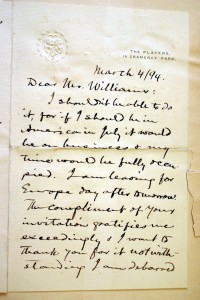 THE PLAYERS
16 GRAMERCY PARK
March 4/94.
Dear Mr. Williams:
I should n't be able to do
it, for if I should be in
America in July it would
be on business & my
time would be fully occu-
pied. I am leaving for
Europe day after tomorrow.
The compliment of your
invitation gratifies me
exceedingly, & I want to
thank you for it notwith-
standing I am debarred